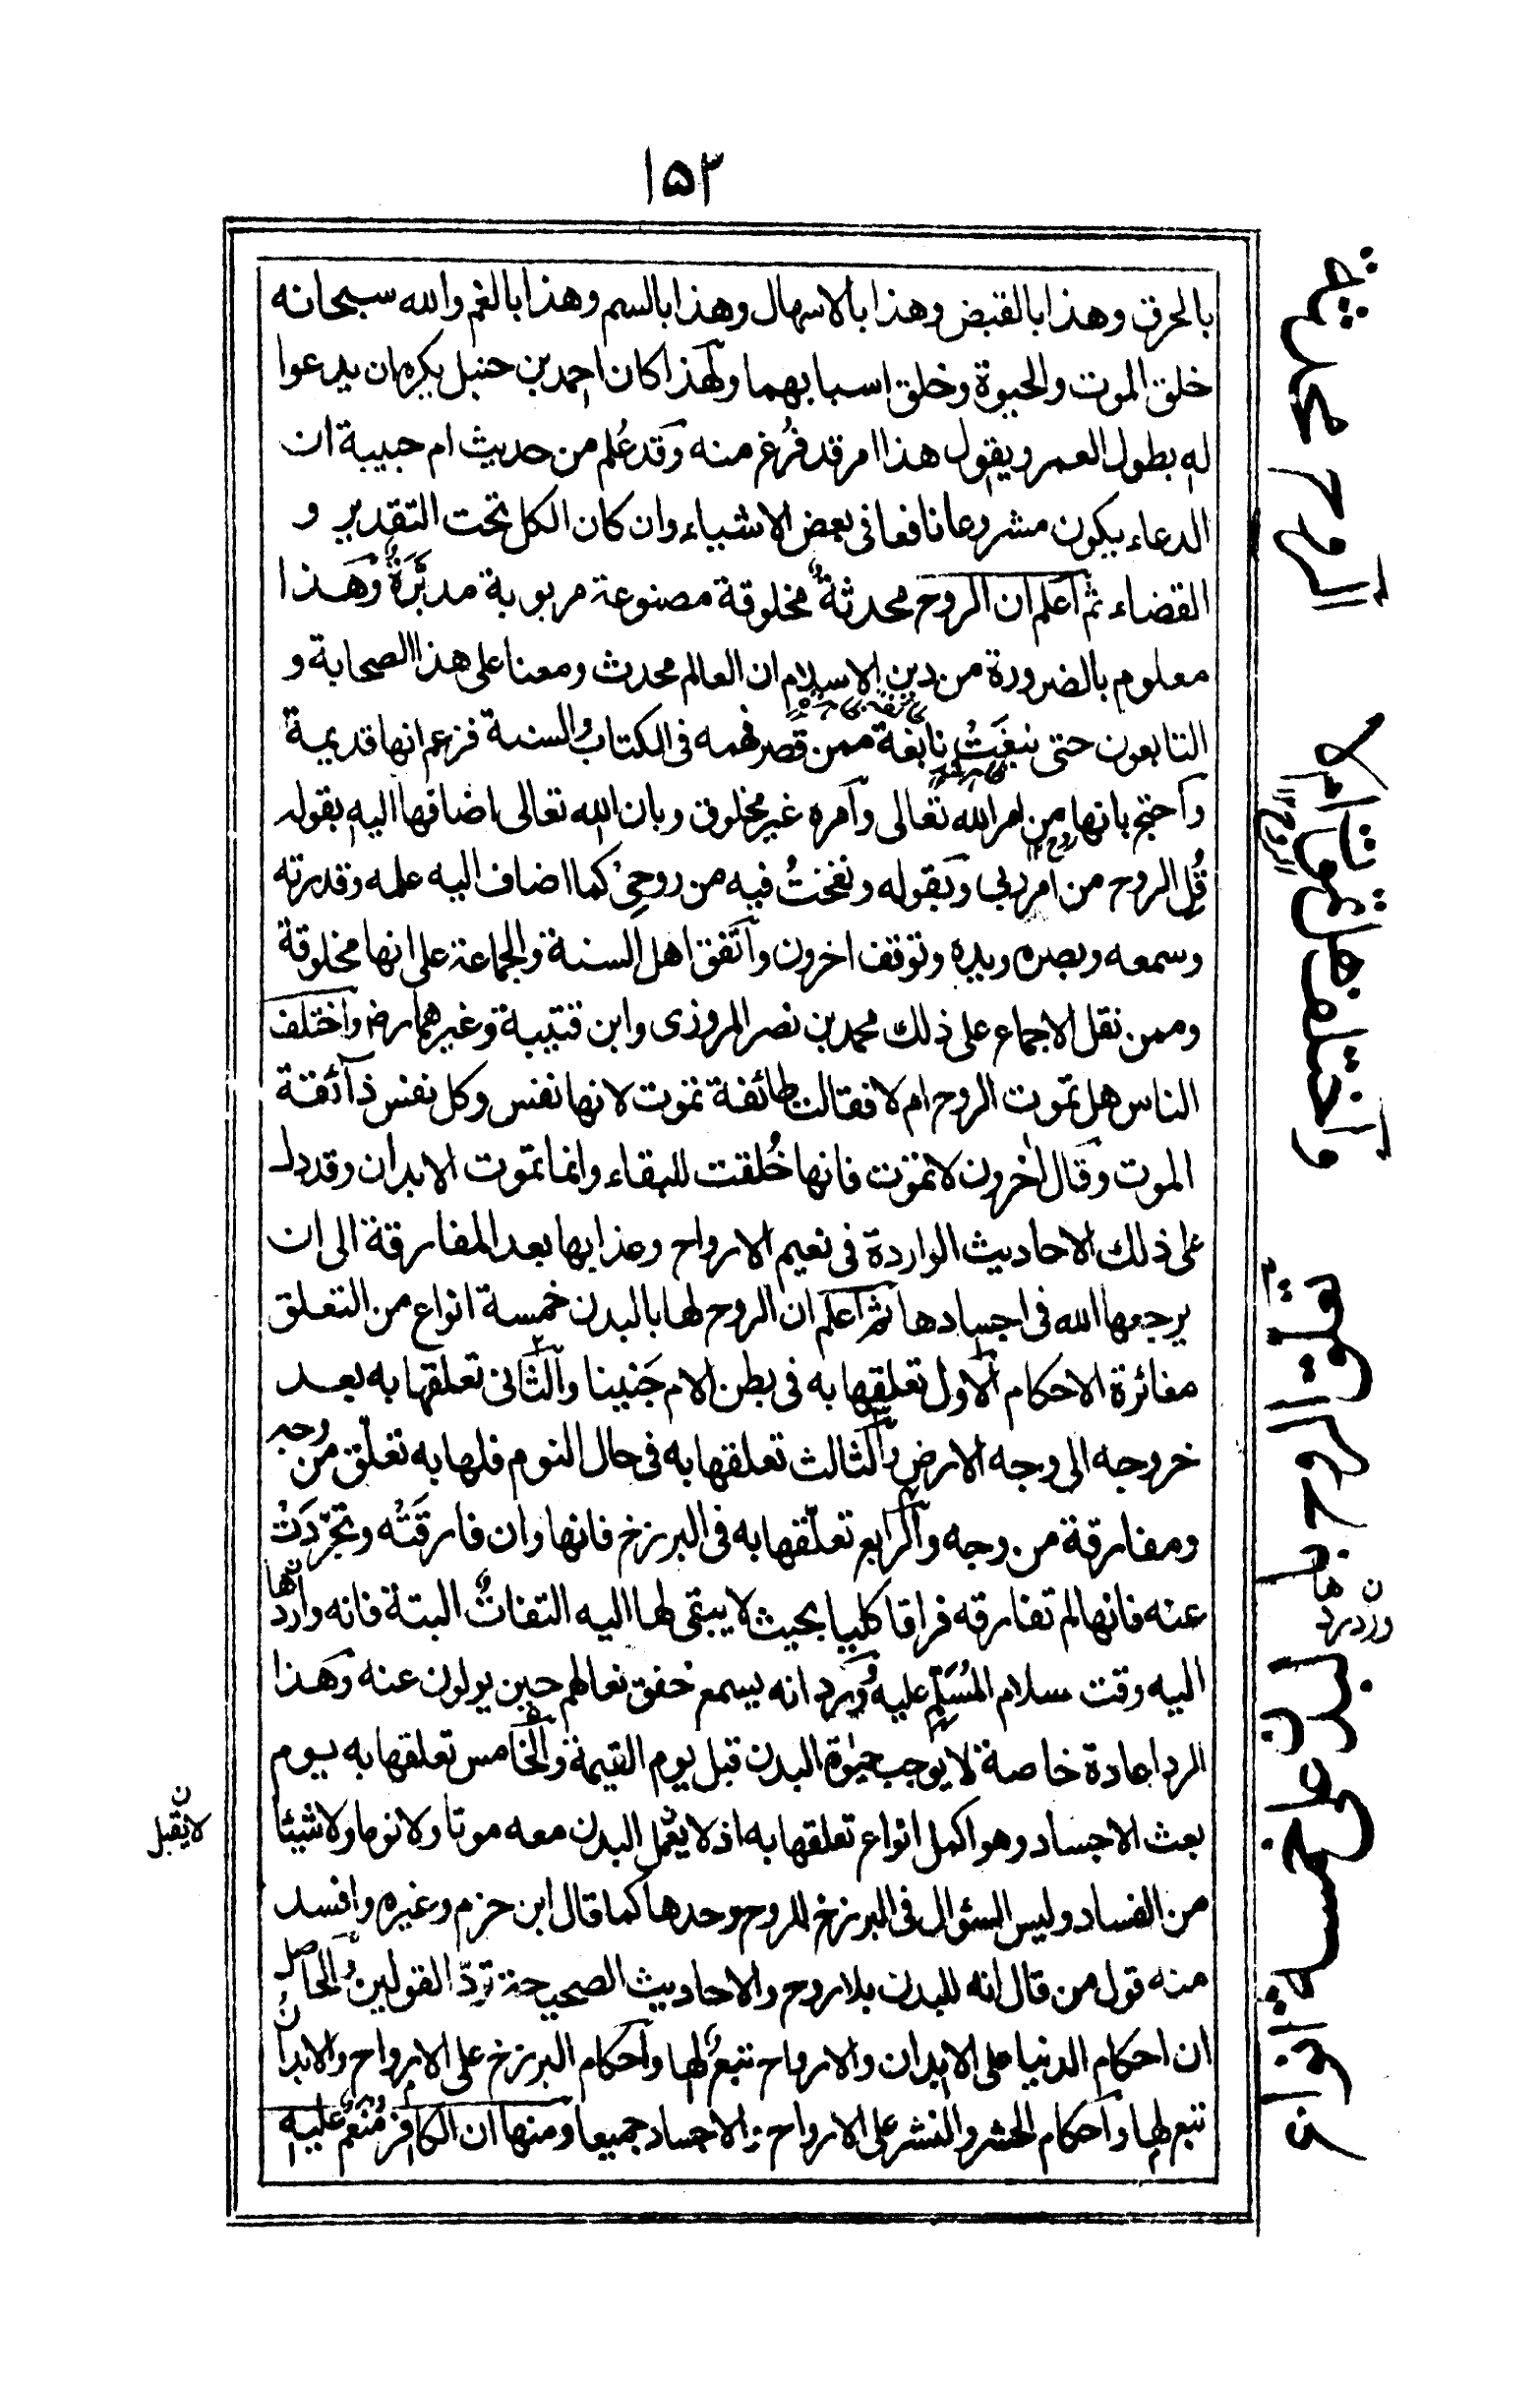 ١٥٣
بالحرق وهذا بالقبض وهذا بالاسهال وهذا بالسم وهذا بالغم والله سبحانه
خلق الموت والحيوة وخلق اسبابهما ولهذا كان احمد بن حنبل يكره ان يدعوا
له بطول العمر ويقول هذا امر قد فُرغ منه وقد عُلم من حديث ام حبيبة ان
الدعاء يكون مشروعا نافعا فى بعض الاشياء وان كان الكل تحت التقدير و
القضاء ثم اعلم ان الروح محدثةٌ مخلوقة مصنوعة مربوبة مدبَّرَةٌ وهذا
معلوم بالضرورة من دين الاسلام ان العالم محدث ومعنا على هذا الصحابة و
التابعون حتى نبغَتْ نابغة ممن قصر فهمه فى الكتاب والسنة فزعم انها قديمة
واحتج بانها من امر الله تعالى وامره غير مخلوق وبان الله تعالى اضافها اليه بقوله
قُلِ الروح من امر ربى وبقوله ونفختُ فيه من روحِىْ كما اضاف اليه علمه وقدرته
وسمعه وبصره ويده وتوقف اخرون واتفق اهل السنة والجماعة على انها مخلوقة
وممن نقل الاجماع على ذلك محمد بن نصر المروزى وابن قتيبة وغيرهما رض واختلف
الناس هل تموت الروح ام لا فقالت طائفة تموت لانها نفس وكل نفس ذآئقة
الموت وقال اخرون لا تموت فانها خُلقت للبقاء وانما تموت الابدان وقد دل
على ذلك الاحاديث الواردة فى نعيم الارواح وعذابها بعد المفارقة الى ان
يرجعها الله فى اجسادها ثم اعلم ان الروح لها بالبدن خمسة انواع من التعلق
مغائرة الاحكام الاول تعلقها به فى بطن الام جَنينا والثانى تعلقها به بعد
خروجه الى وجه الارض والثالث تعلقها به فى حال النوم فلها به تعلّق من وجه
ومفارقة من وجه والرابع تعلّقها به فى البرزخ فانها وان فارقَتْه وتجرّدَتْ
عنه فانها لم تفارقه فراقا كليا بحيث لا يبقى لها اليه التفاتٌ البتة فانه وارد
اليه وقت سلام المُسَلِّمِ عليه وورد انه يسمع خفق نعالهم حين يولون عنه وهذا
الرد اعادة خاصة لا يوجب حيٰوة البدن قبل يوم القيمة والخامس تعلقها به يوم
بعث الاجساد وهو اكمل انواع تعلقها به اذ لا يقبل البدن معه موتا ولا نوما ولا شيئا
من الفساد وليس السؤال فى البرزخ للروح وحدها كما قال ابن حزم وغيره وافسد
منه قول من قال انه للبدن بلا روح والاحاديث الصحيحة تردّ القولين والحاصل
ان احكام الدنيا على الابدان والارواح تبعٌ لها واحكام البرزخ على الارواح والابدان
تبع لها واحكام الحشر والنشر على الارواح والاجساد جميعا ومنها ان الكافر مُنعَمٌ عليه
الروح محدثة
واختلف هل تموت ام لا
ن
لا يقبل